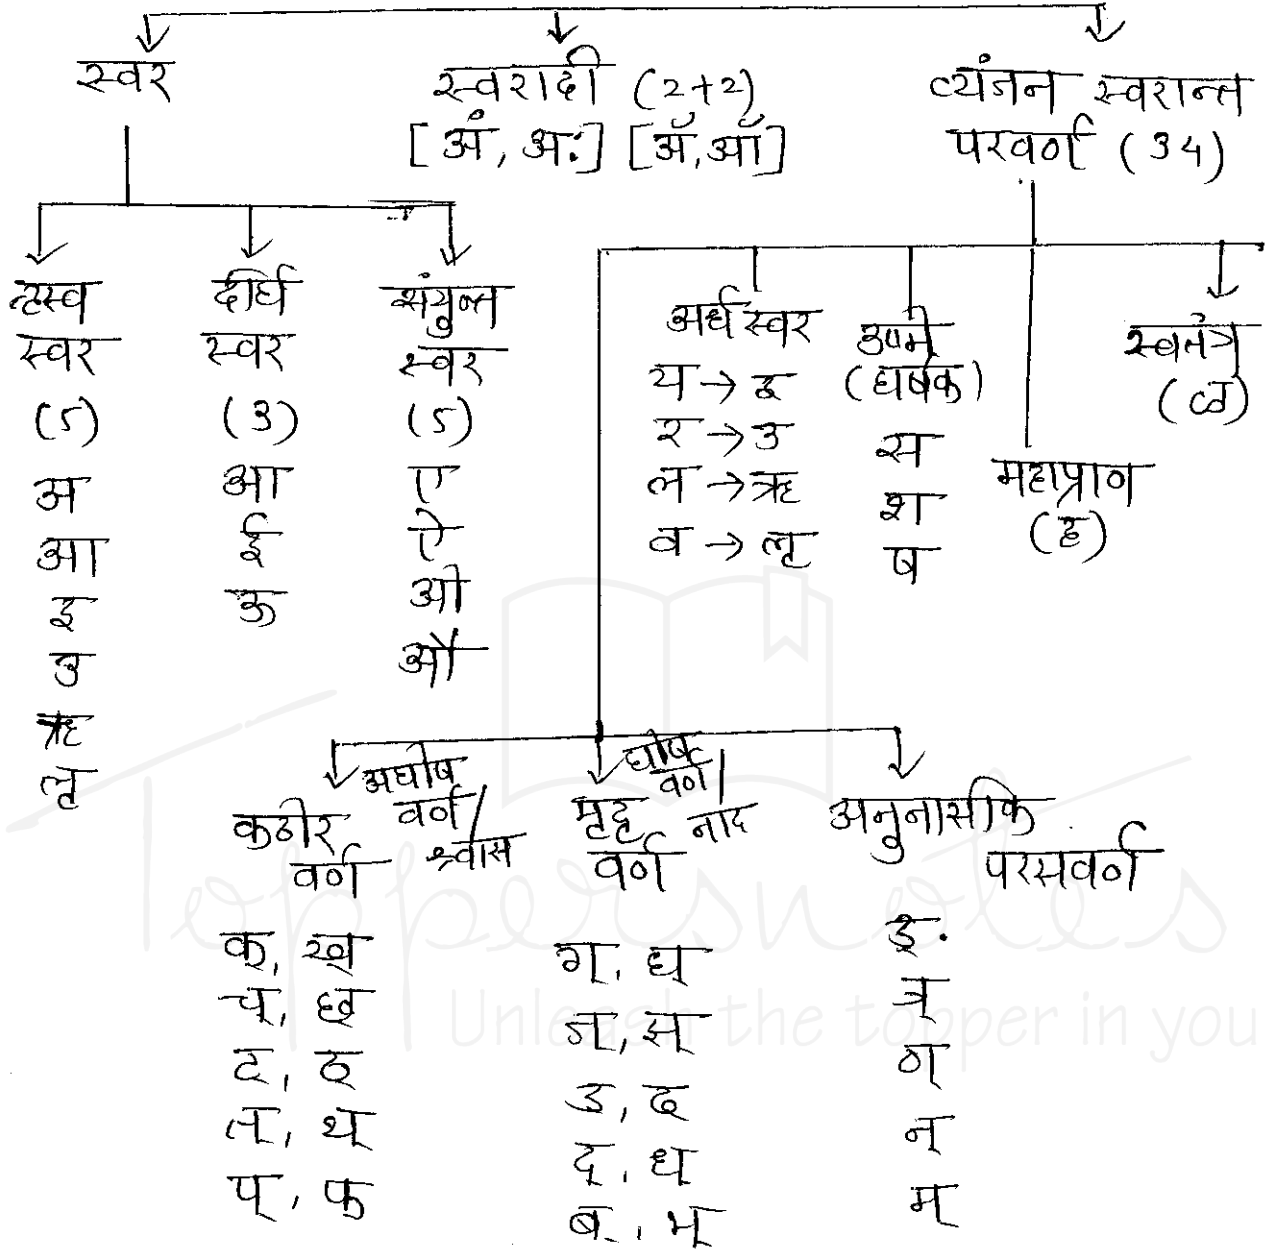 स्वर
स्वरादी (2+2)
[अं, अः] [ॲ, ऑ]
व्यंजन स्वरान्त
परवर्ण (34)
ऱ्हस्व
स्वर
(5)
अ
आ
इ
उ
ऋ
लृ
दीर्घ
स्वर
(3)
आ
ई
ऊ
संयुक्त
स्वर
(5)
ए
ऐ
ओ
औ
अर्धस्वर
य → इ
र → उ
ल → ऋ
व → लृ
उष्मे
(घर्षक)
स
श
ष
महाप्राण
(ह)
स्वतंत्र
(ळ)
कठोर
वर्ण
अघोष
वर्ण/
श्वास
क्, ख्
च्, छ्
ट्, ठ्
त्, थ्
प्, फ्
मृदू
वर्ण
घोष
वर्ण/
नाद
ग्, घ्
ज्, झ्
ड, ढ
द्, ध
ब्, भ्
अनुनासीक
परसवर्ण
ङ
ञ्
ण्
न्
म्
Toppersnotes
Unleash the topper in you